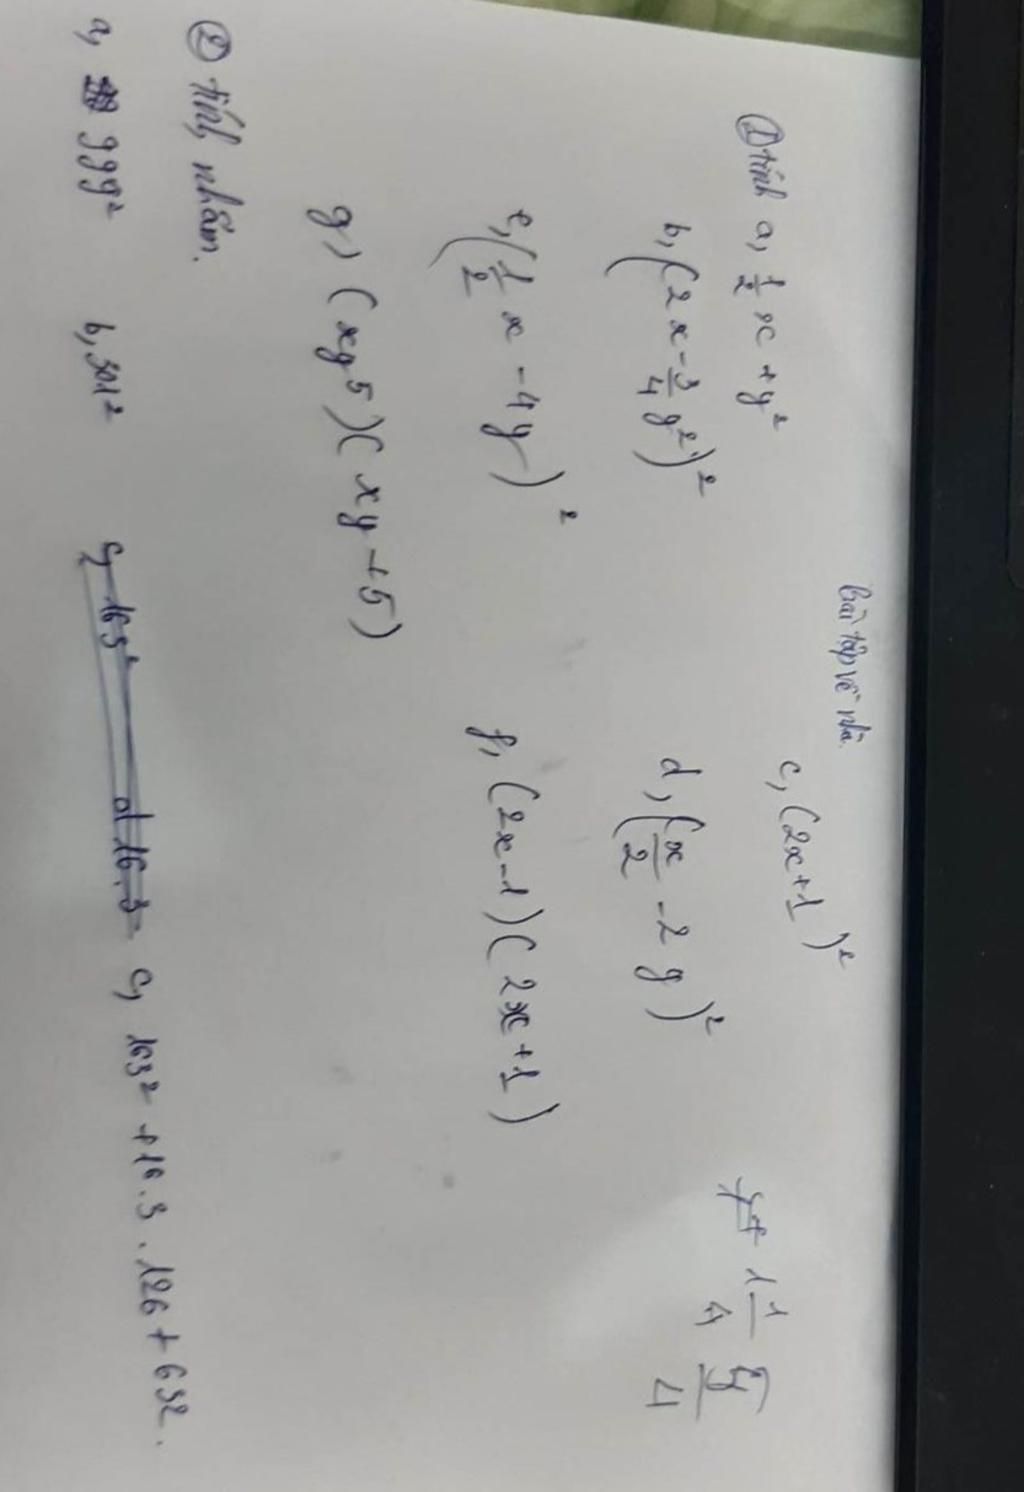 bài tập về nhà
① tính a, 1/2 x + y² c, (2x+1)²
b, (2x - 3/4 y²)² d, (x/2 - 2y)²
e, (1/2 x - 4y)² f, (2x-1)(2x+1)
g, (xy 5)(xy+5)
② tính nhẩm.
a, 999² b, 301²
c, 163² + 16.3.126 + 632.
1 1/4